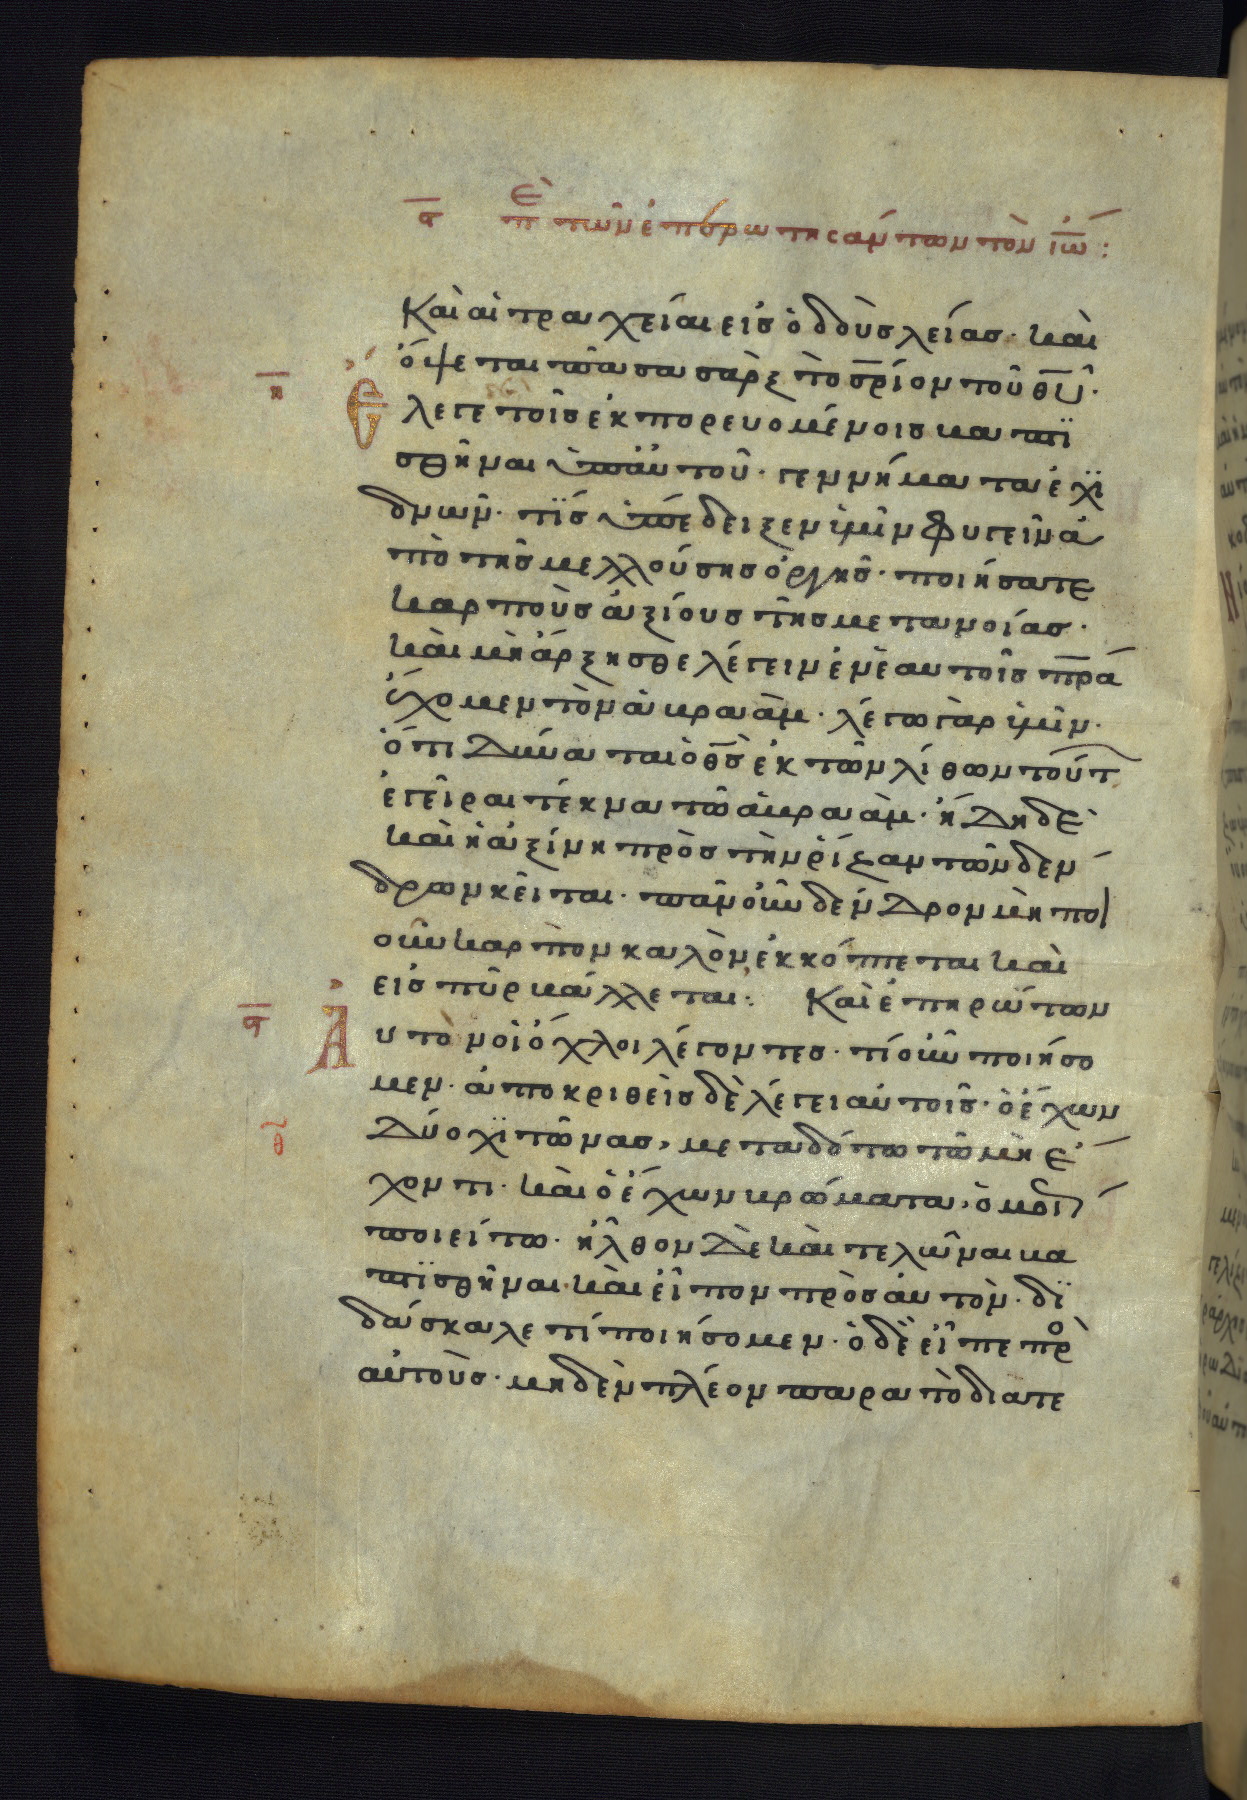 ϛ Πε τῶν ἐπερωτησάντων τὸν ἰω :
Καὶ αἱ τραχεῖαι εἰσ ὁδοὺσ λείασ· καὶ
ὄψεται πᾶσα σὰρξ τὸ σριον τοῦ θυ·
η Ἔλεγε τοῖσ ἐκπορευομένοισ βαπτϊ
σθῆναι ὑπ αὐτοῦ· γεννήματα ἐχϊ
δνῶν· τϊσ ὑπέδειξεν ὑμῖν φυγεῖν ἀ
πὸ τῆσ μελλούσησ ὀργῆσ· ποιήσατε
καρποὺσ ἀξίουσ τῆσ μετανοίασ·
καὶ μὴ ἄρξησθε λέγειν ἐν ἑαυτοῖσ πρα
ἔχομεν τὸν ἀβραάμ· λέγω γὰρ ὑμῖν·
ὅτι δύναται ὁ θσ ἐκ τῶν λίθων τούτ
ἐγεῖραι τέκνα τῶ ἀβραάμ· ἤδη δὲ
καὶ ἡ ἀξίνη πρὸσ τὴν ῥίζαν τῶν δέν
δρων κεῖται· πᾶν οὖν δένδρον μὴ ποι
οῦν καρπὸν καλὸν ἐκκόπτεται καὶ
εἰσ πῦρ βάλλεται: Καὶ ἐπηρώτων
ϛ Αὐτὸν οἱ ὄχλοι λέγοντεσ· τί οὖν ποιήσο
μεν· ἀποκριθεὶσ δὲ λέγει αὐτοῖσ· ὁ ἔχων
θ δύο χϊτῶνασ, μεταδότω τῶ μὴ ἔ
χοντι· καὶ ὁ ἔχων βρώματα, ὁμοί
ποιείτω· ἦλθον δὲ καὶ τελῶναι βα
πτϊσθῆναι· καὶ εἶπον πρὸσ αὐτόν· δϊ
δάσκαλε τί ποιήσομεν· ὁ δὲ εἶπε προ
αὐτούσ· μηδὲν πλέον παρὰ τὸ διατε